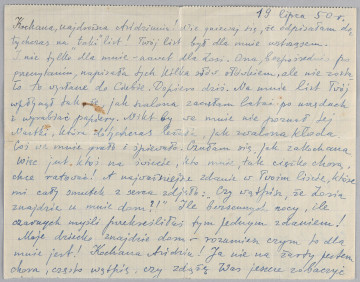 19 lipca 50 r.
Kochana, najdroższa Ardziuniu! Nie gniewaj się, że odpisałam do-
tychczas na "taki" list! Twój list był dla mnie wstrząsem.
I nie tylko dla mnie - nawet dla Zosi. Ona, bezpośrednio po
przeczytaniu, napisała tych kilka słów ołówkiem, ale nie
to to wysłane do Ciebie. Dopiero dziś. Na mnie list Twój
wpłynął tak, że jak szalona zaczęłam latać po urzędach
i wyrabiać papiery. Nikt by we mnie nie poznał tej
Matki, która dotychczas leżała, jak zwalona kłoda.
Coś we mnie grało i śpiewało. Czułam się, jak zakochana.
Więc jest ktoś na świecie, kto mnie, tak ciężko chorą,
chce ratować! A najważniejsze zdanie w Twoim liście, które
mi cały smutek z serca zdjęło: "Czy wątpisz, że Zosia
znajdzie u mnie dom?!" Ile bezsennych nocy, ile
czarnych myśli przekreśliłaś tym jednym zdaniem!
Moje dziecko znajdzie dom - rozumiesz czym to dla
mnie jest! Kochana Ja nie na żarty jestem
chora, często wątpię, czy zdążę Was jeszcze zobaczyć